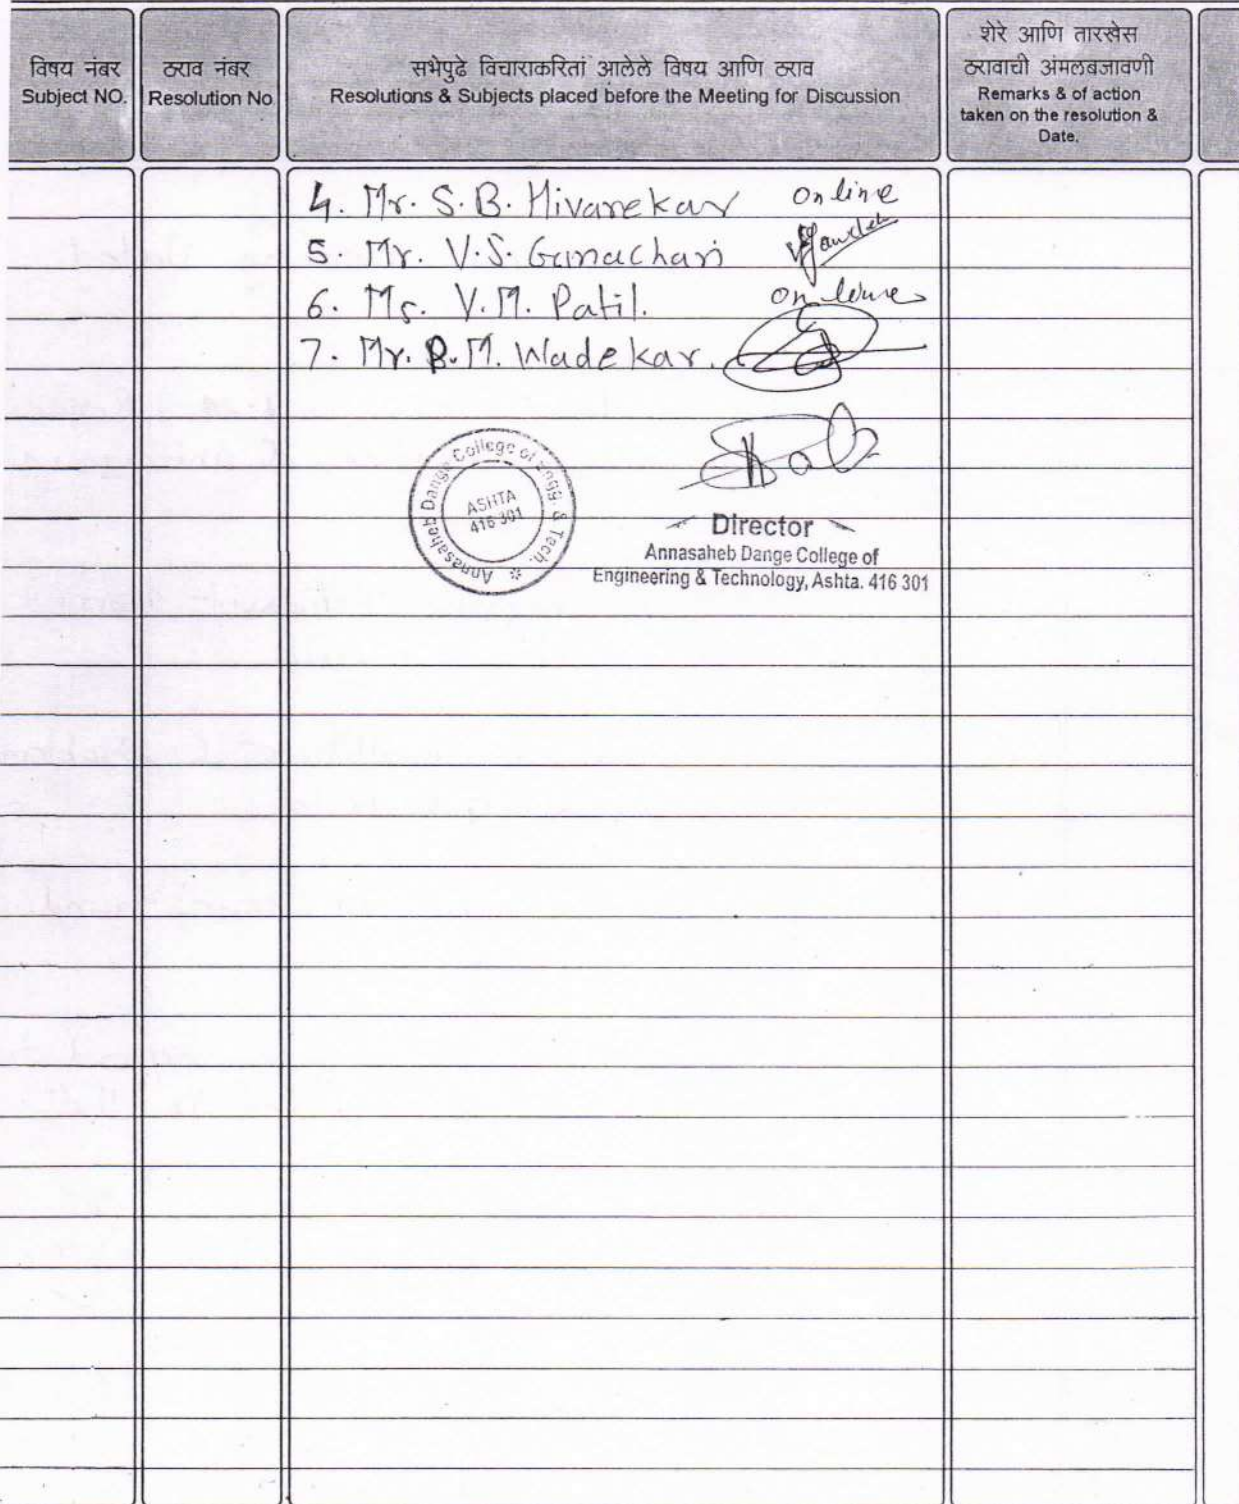 विषय नंबर
Subject NO.
ठराव नंबर
Resolution No
सभेपुढे विचाराकरितां आलेले विषय आणि ठराव
Resolutions & Subjects placed before the Meeting for Discussion
शेरे आणि तारखेस
ठरावाची अंमलबजावणी
Remarks & of action
taken on the resolution &
Date.
4. Mr. S.B. Hivarekar online
5. Mr. V.S. Gunachari
6. Ms. V.M. Patil. online
7. Mr. B.M. Wadekar.
Annasaheb Dange College of Engg. & Tech.
ASHTA
416 301
Director
Annasaheb Dange College of
Engineering & Technology, Ashta. 416 301